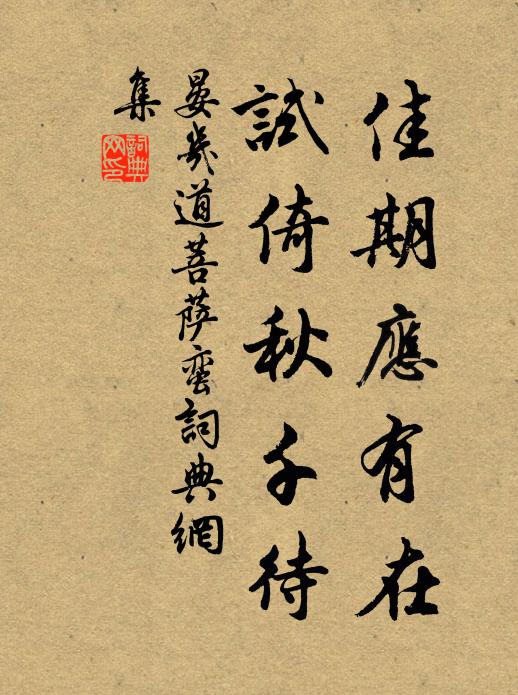 佳期應有在
試倚秋千待
晏幾道菩薩蠻詞典網
集
詞典
网印